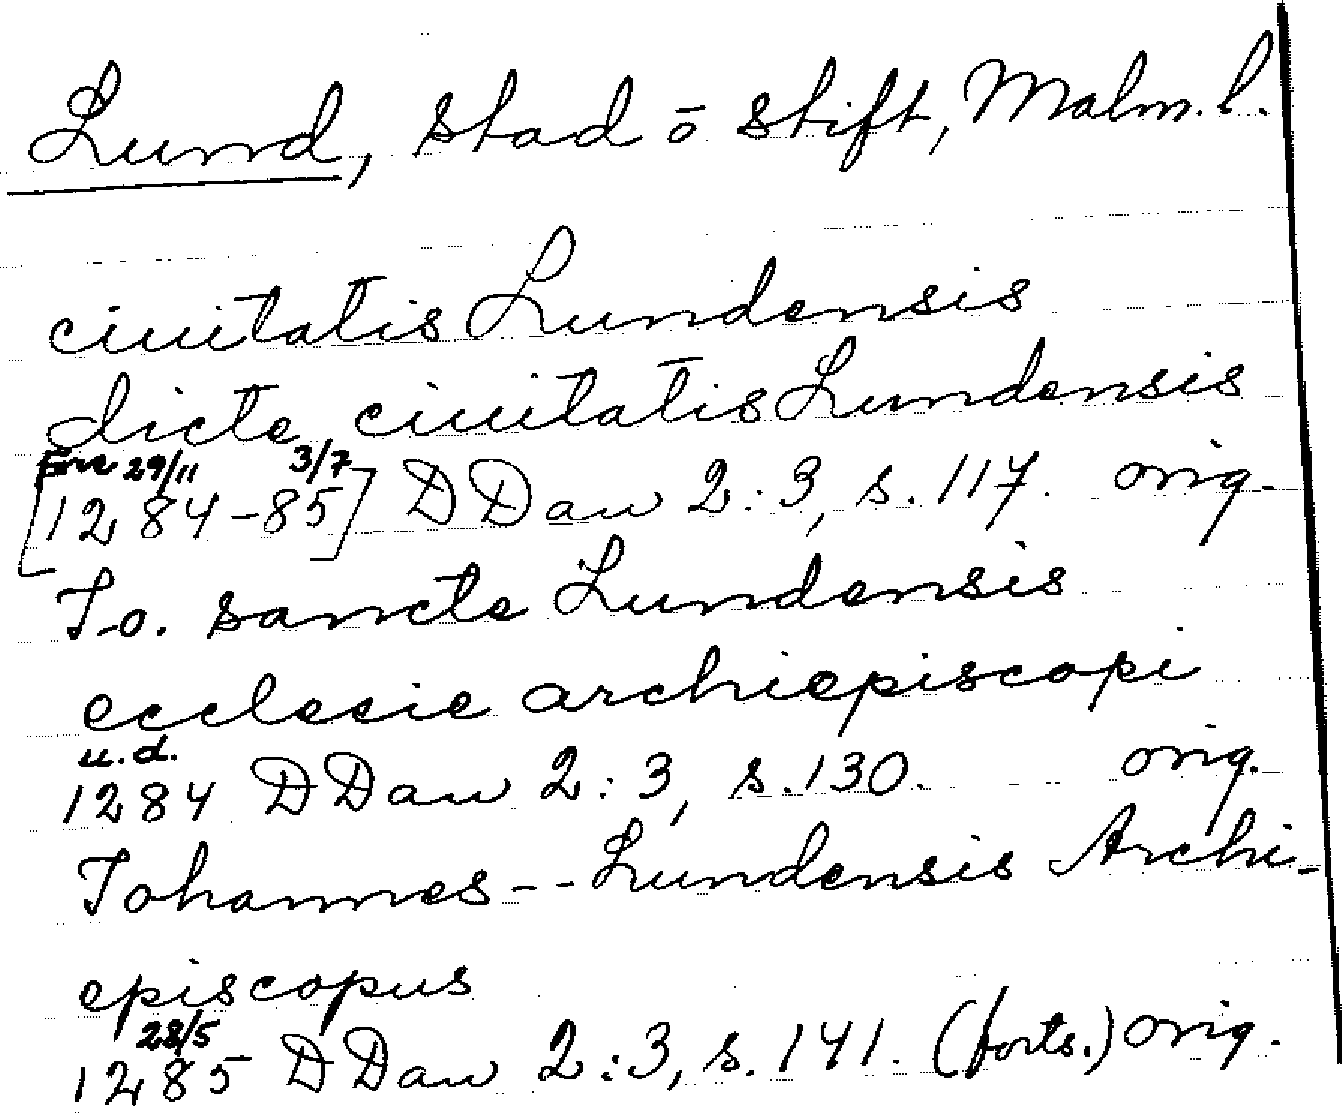 Lund, stad o stift, Malm.l.
ciuitatis Lundensis
dicte ciuitatis Lundensis
29/11 3/7
[1284-85] DDan 2:3, s.117. orig.
Jo. sancte Lundensis
ecclesie archiepiscopi
u.d.
1284 DDan 2:3, s.130. orig.
Johannes -- Lundensis Archi-
episcopus
28/5
1285 DDan 2:3, s.141. (forts.) orig.